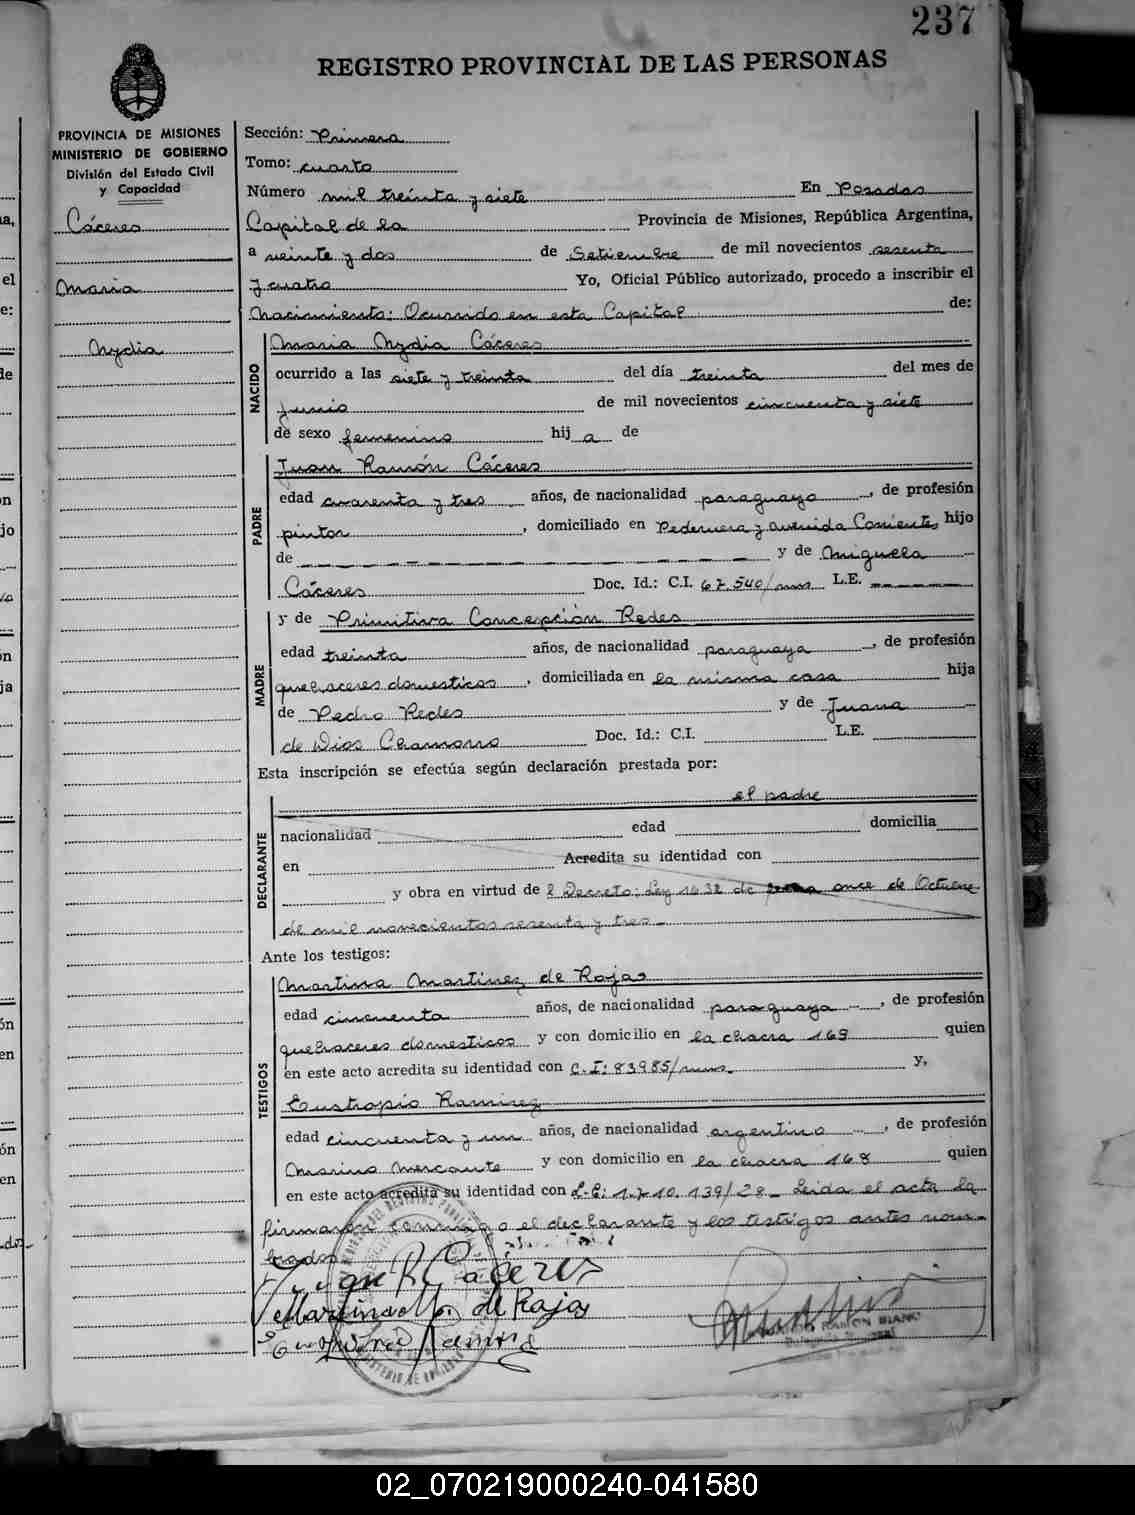 237
REGISTRO PROVINCIAL DE LAS PERSONAS
PROVINCIA DE MISIONES
MINISTERIO DE GOBIERNO
División del Estado Civil
y Capacidad
Cáceres
Maria
Nydia
Sección: Primera
Tomo: cuarto
Número mil treinta y siete En Posadas
Capital de la Provincia de Misiones, República Argentina,
a veinte y dos de Setiembre de mil novecientos sesenta
y cuatro Yo, Oficial Público autorizado, procedo a inscribir el
Nacimiento: Ocurrido en esta Capital de:
NACIDO
Maria Nydia Cáceres
ocurrido a las siete y treinta del día treinta del mes de
Junio de mil novecientos cincuenta y siete
de sexo femenino hij a de
PADRE
Juan Ramón Cáceres
edad cuarenta y tres años, de nacionalidad paraguaya, de profesión
pintor, domiciliado en Pedernera y avenida Corrientes hijo
de y de Miguela
Cáceres Doc. Id.: C.I. 67.540/mns L.E.
MADRE
y de Primitiva Concepción Redes
edad treinta años, de nacionalidad paraguaya, de profesión
quehaceres domesticos, domiciliada en la misma casa hija
de Pedro Redes y de Juana
de Dios Chamorro Doc. Id.: C.I. L.E.
Esta inscripción se efectúa según declaración prestada por:
DECLARANTE
el padre
nacionalidad edad domicilia
en Acredita su identidad con
y obra en virtud de l Decreto: Ley 1432 de once de Octubre
de mil novecientos sesenta y tres
Ante los testigos:
TESTIGOS
Martina Martinez de Rojas
edad cincuenta años, de nacionalidad paraguaya, de profesión
quehaceres domesticos y con domicilio en la chacra 169 quien
en este acto acredita su identidad con C.I: 83985/mns. y,
Eustropio Ramirez
edad cincuenta y un años, de nacionalidad argentino, de profesión
Marino Mercante y con domicilio en la chacra 168 quien
en este acto acredita su identidad con L.E: 1.710.139/28 Leida el acta la
firmaron conmigo el declarante y los testigos antes nom-
brados
Juan R Cáceres
Martina M. de Rojas
RAMON BIANC
02_070219000240-041580